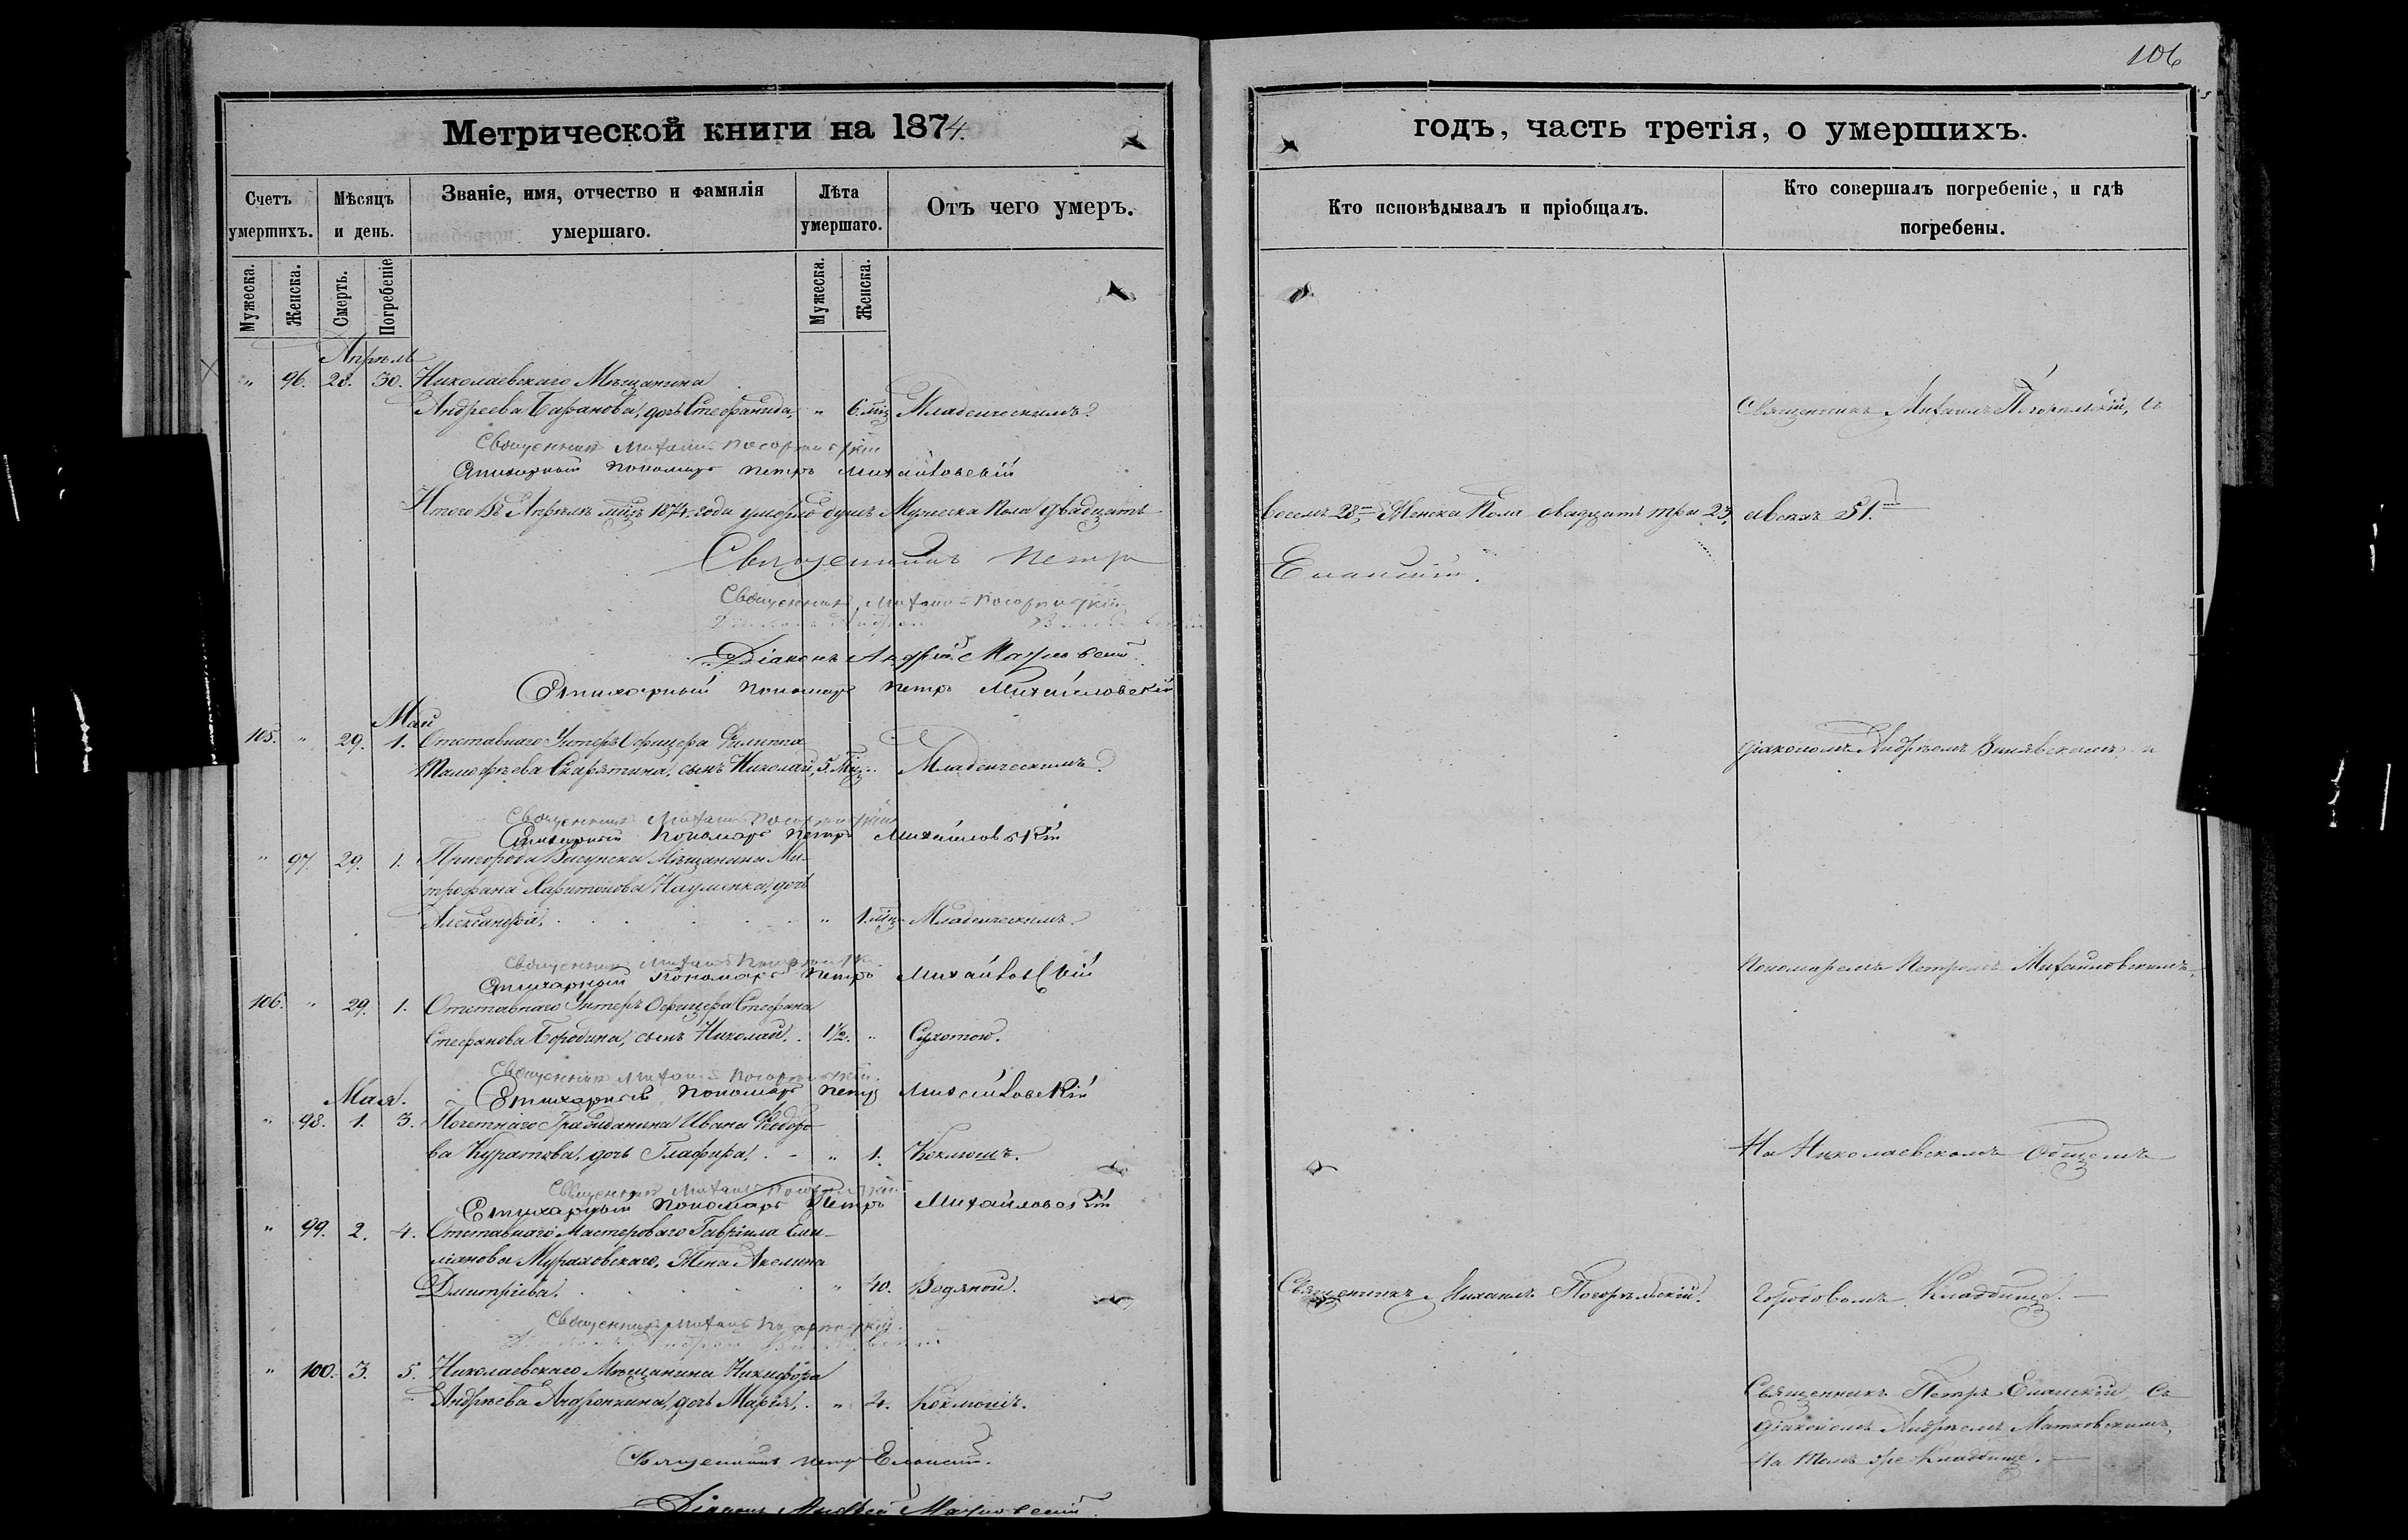 106
Метрической книги на 1874.
годъ, часть третія, о умершихъ.
Счетъ умершихъ.
Мѣсяцъ и день.
Званіе, имя, отчество и фамилія умершаго.
Лѣта умершаго.
Отъ чего умеръ.
Кто исповѣдывалъ и пріобщалъ.
Кто совершалъ погребеніе, и гдѣ погребены.
Мужеска. Женска. Смерть. Погребеніе. Мужеска. Женска.
Апрѣль
" 96. 28. 30. Николаевскаго Мѣщанина
Андреева Баранова, дочь Стефанида, " 6. мц Младенческимъ.
Священникъ Михаилъ Погорѣльскій, съ
Священникъ Михаилъ
Стихарный пономарь Петръ Михайловскій
Итого въ Апрѣлѣ мцѣ 1874 года умерло душъ Мужеска Пола двадцать
восемь 28, Женска Пола двадцать три 23, 51.
Священникъ Петръ
Еланскій.
Священникъ Михаилъ
Діаконъ Андрей
Стихарный пономарь Петръ Михайловскій
Май
105. " 29. 1. Отставнаго Унтеръ Офицера Филиппа
сынъ Николай, 5. Мц. " Младенческимъ.
діакономъ Андреемъ и
Священникъ Михаилъ
Стихарный пономарь Петръ Михайловскій
" 97. 29. 1. Пригорода Мѣщанина Ми-
трофана Харитонова Науменка, дочь
Александра, " 1. мц Младенческимъ.
Священникъ Михаилъ
Стихарный пономарь Петръ Михайловскій
Пономаремъ Петромъ Михайловскимъ,
106. " 29. 1. Отставнаго Унтеръ Офицера Стефана
Стефанова Бородина, сынъ Николай. 1½. " Сухотою.
Священникъ Михаилъ
Стихарный пономарь Петръ Михайловскій
Мая.
" 98. 1. 3. Почетнаго Гражданина Ивана Ѳедоро-
ва Куратова, дочь Глафира, " 1. Коклюшъ.
На Николаевскомъ Общемъ
Священникъ Михаилъ
Стихарный пономарь Петръ Михайловскій
" 99. 2. 4. Отставнаго Мастероваго Гавріила Еми-
ліянова Мураховскаго, Жена Акелина
Дмитріева. " 40. Водяной.
Священникъ Михаилъ Погорѣльскій.
Городовомъ Кладбищѣ.
Священникъ Михаилъ
" 100. 3. 5. Николаевскаго Мѣщанина Никифора
Андрѣева Андронкина, дочь Марія, " 4. Коклюшъ.
Священникъ Петръ Еланскій съ
діакономъ Андреемъ Матковскимъ,
На томъ же Кладбищѣ.
Священникъ Петръ Еланскій.
Діаконъ Андрей